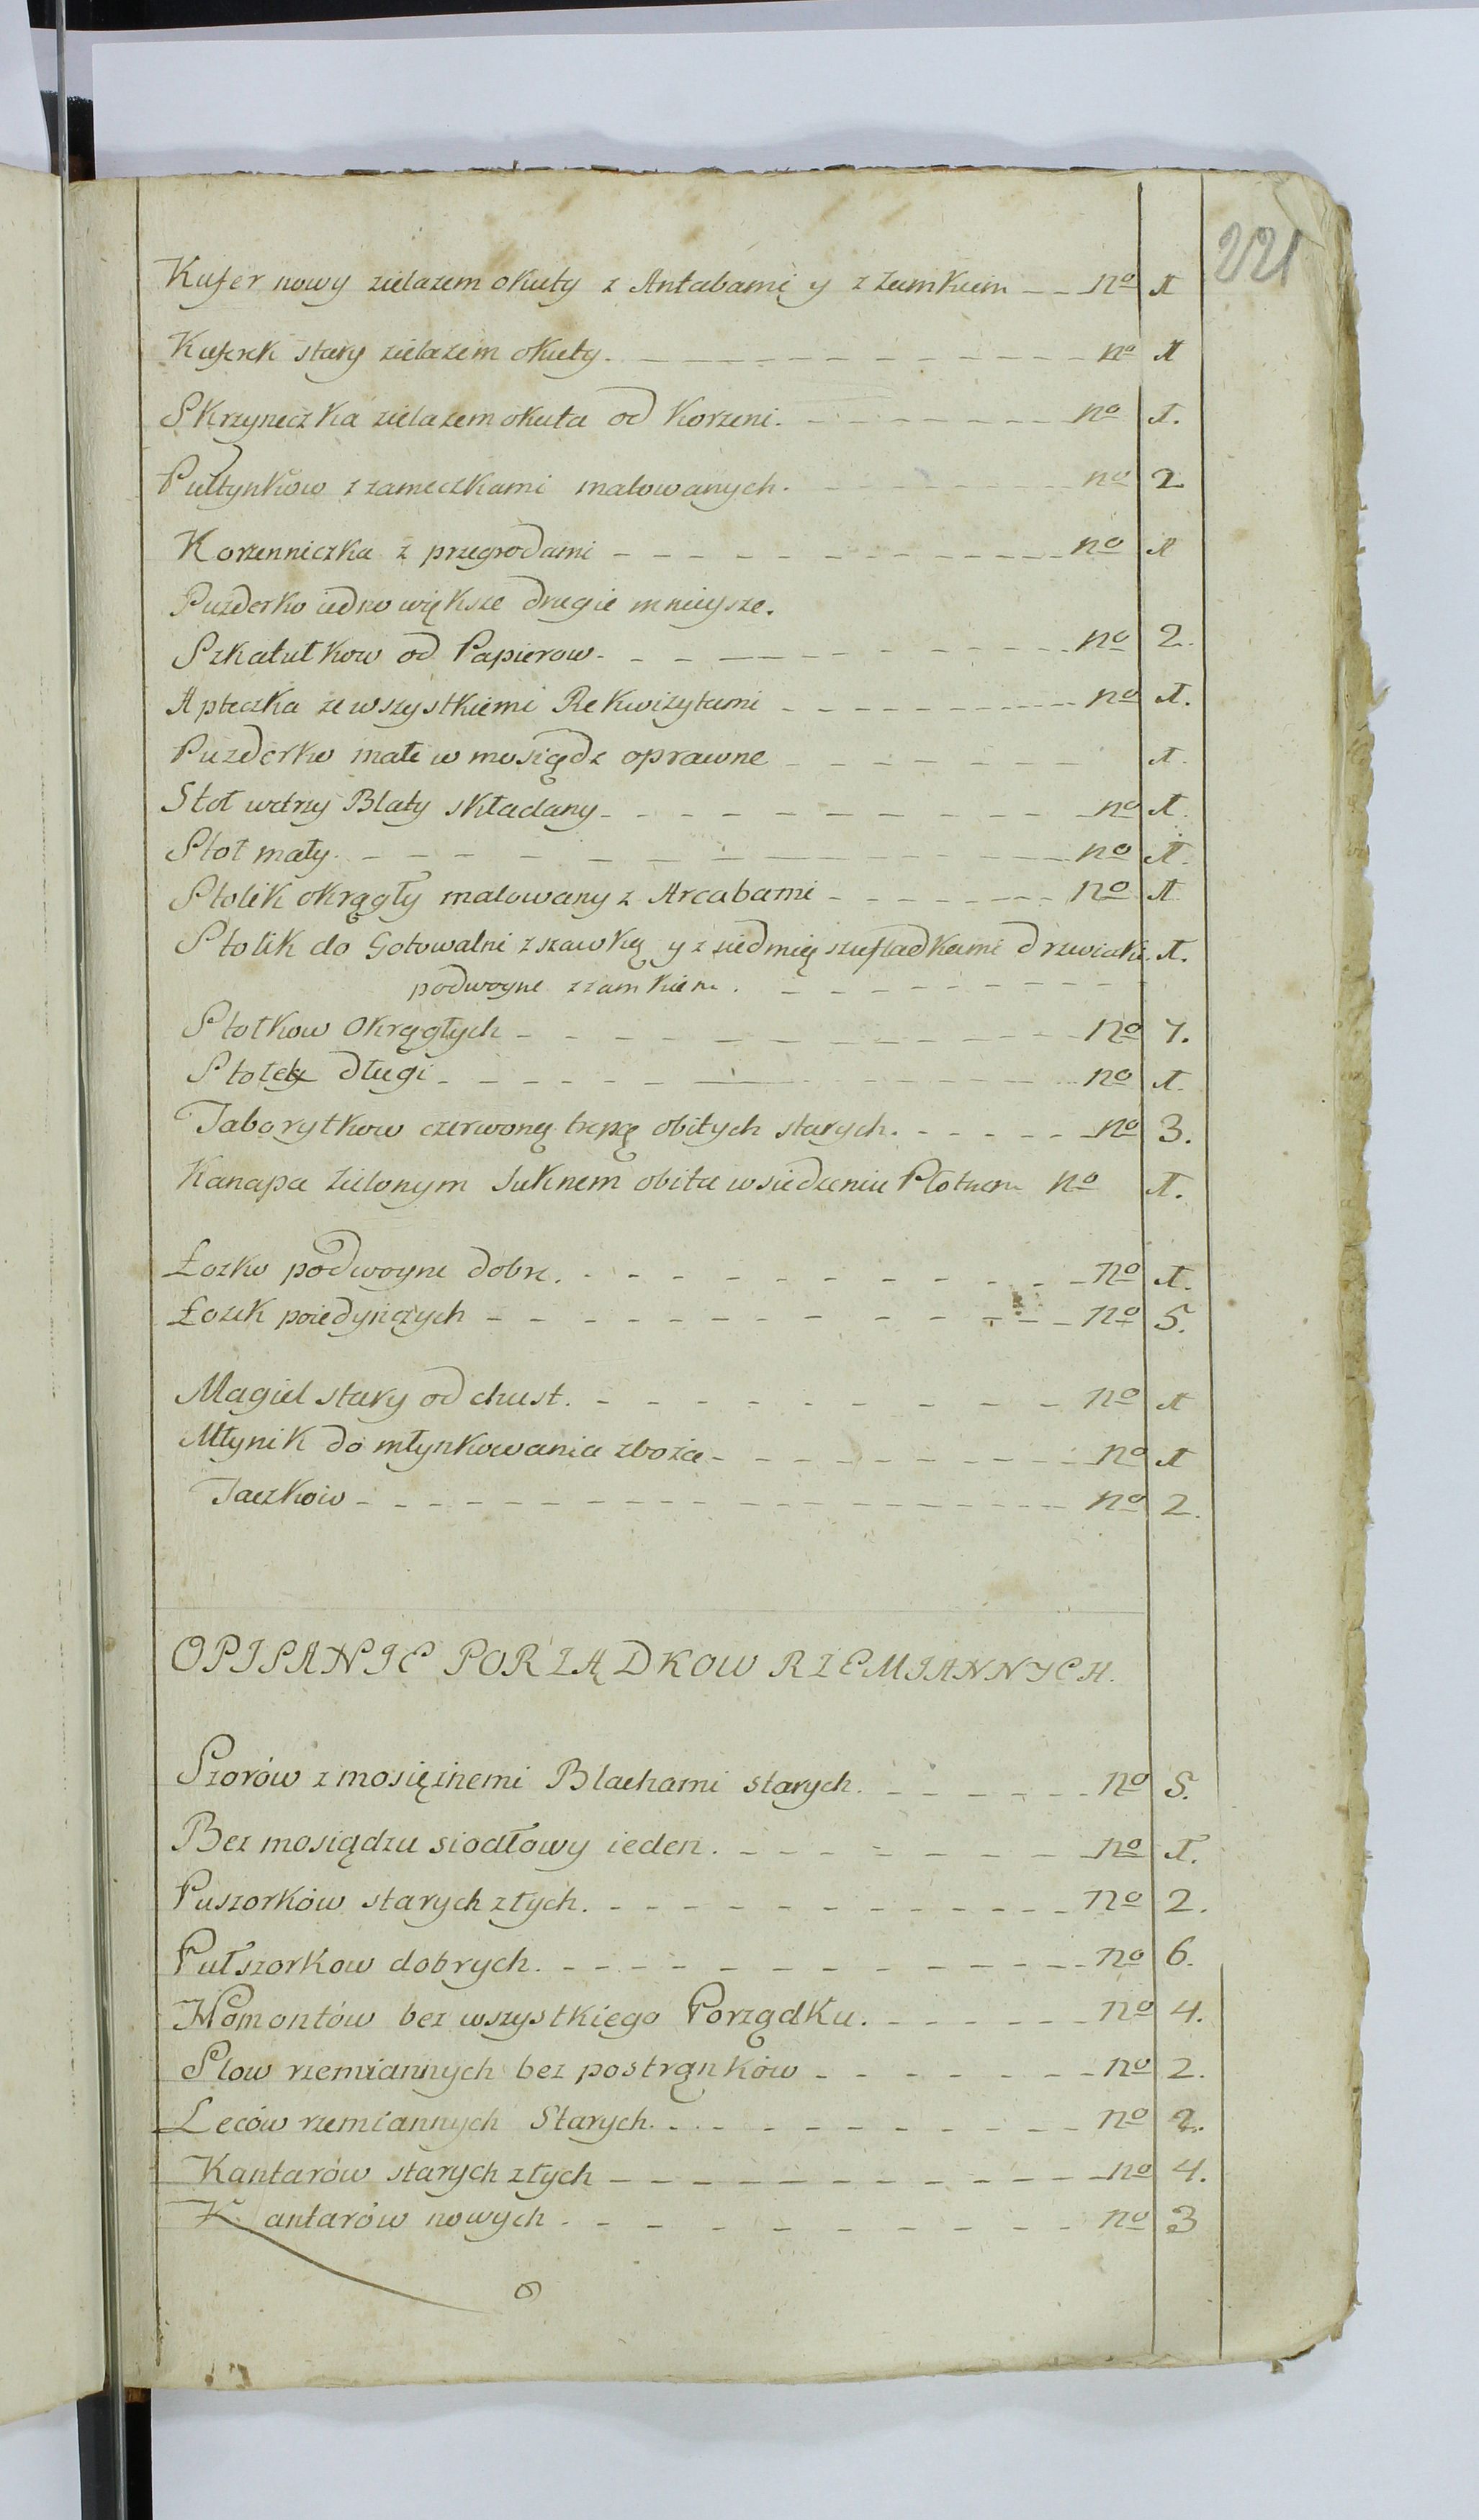 221
Kufer nowy zielazem okuty z Antabamį y z zamkiem — — no 1
Kuferek stary zielazem okuty. — — — no 1
Skrzyneczka zielazem okuta od Korzeni. — — — no 1.
Pułtynków z zameczkami malowanych. — — — no 2
Korzenniczka z przegrodami — — — no 1
Puzderko iedno większe drugie mnieysze.
Szkatułkow od Papierow. — — — no 2.
Apteczka ze wszystkiemi Rekwizytami — — — no 1.
Puzderko małe w mosiądz oprawne — — — 1.
Stoł wetrzy Blaty składany — — — no 1.
Stoł mały. — — — no 1.
Stolik okrągły malowany z Arcabami — — — no 1
Stolik do Gotowalni z szawką y z siedmią szufladkami drzwiczki. 1.
podwoyne z zamkiem. — — —
Stołkow Okrągłych — — — no 7.
Stołek długi — — — no 1.
Taborytkow czerwoną trypą obitych starych. — — — no 3.
Kanapa Zielonym Suknem obita w siedzeniu Płotnem no 1.
Łozko podwoyne dobre. — — — no 1.
Łozek poiedyńczych — — — no 5.
Magiel stary od chust. — — — no 1
Młynik do młynkowania zboża — — — no 1
Taczkow — — — no 2.
OPISANIE PORZĄDKOW RZEMIANNYCH.
Szorów z mosiężnemi Blachami starych. — — — no 5.
Bez mosiądzu siodłowy ieden. — — — no 1.
Puszorków starych złych. — — — no 2.
Pułszorkow dobrych. — — — no 6.
Homontów bez wszystkiego Porządku. — — — no 4.
Slow rzemiannych bez postrąnków — — — no 2.
Leców rzemiannych Starych. — — — no 2.
Kantarów starych złych — — — no 4.
Kantarów nowych — — — no 3